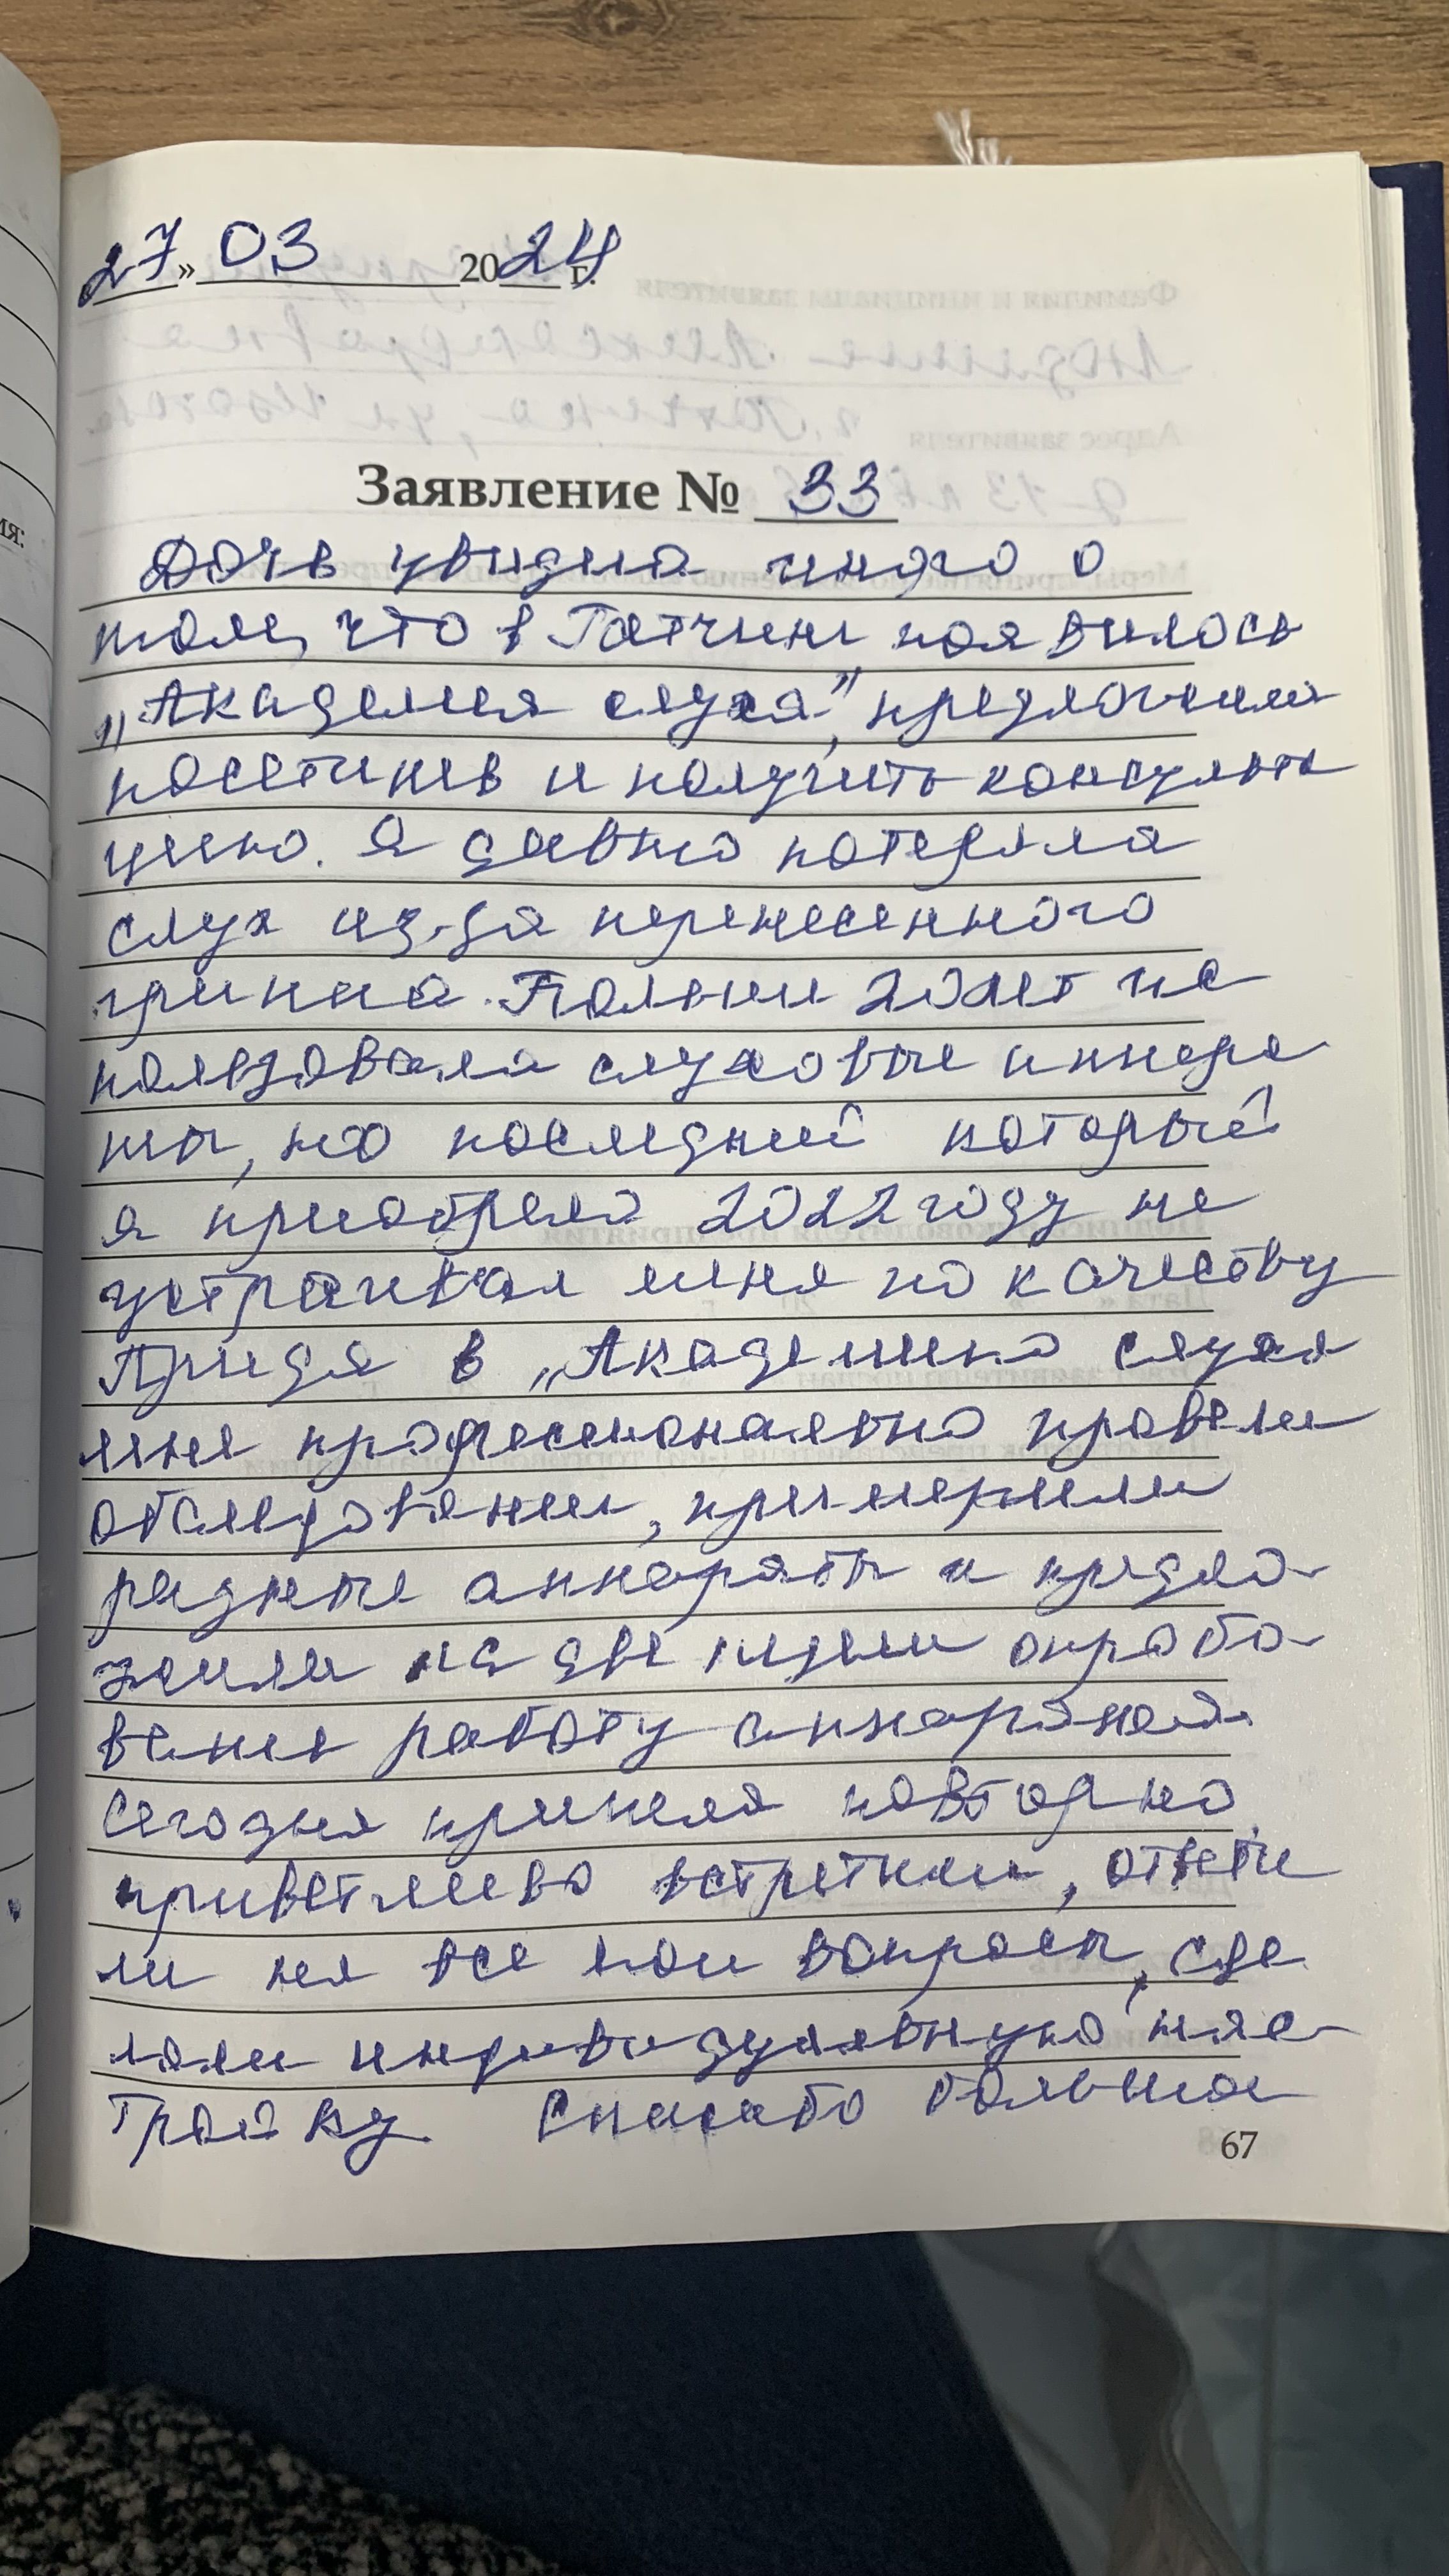 27 » 03 2024 г.
Заявление № 33
Дочь увидела много о
том, что в Гатчине появилось
„Академия слуха”, предложили
посетить и получить консульта
цию. Я давно потеряла
слух из-за перенесенного
гриппа. Больше 20 лет ис
пользовала слуховые аппара
ты, но последний который
я приобрела 2022 году не
устраивал меня по качеству
Придя в „Академию слуха
мне профессионально провели
обследование, примерили
разные аппараты и предло-
жили на две недели опробо-
вание работу аппаратов.
Сегодня пришла повторно
приветливо встретили, ответи
ли на все мои вопросы, сде
лали индивидуальную нас-
тройку Спасибо большое
67